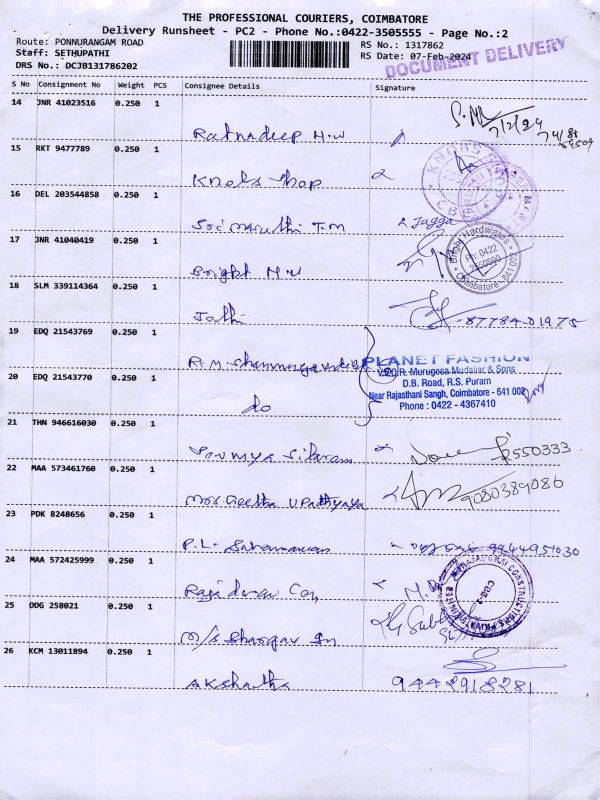 THE PROFESSIONAL COURIERS, COIMBATORE
Delivery Runsheet - PC2 - Phone No.:0422-3505555 - Page No.:2
Route: PONNURANGAM ROAD
Staff: SETHUPATHI
DRS No.: DCJB131786202
RS No.: 1317862
RS Date: 07-Feb-2024
DOCUMENT DELIVERY
S No Consignment No Weight PCS Consignee Details Signature
14 JNR 41023516 0.250 1
Ratnadeep H.W
7/2/24
15 RKT 9477789 0.250 1
Knobs Shop
KNOBS
16 DEL 203544858 0.250 1
Sri Maruthi T.M
Jagga
17 JNR 41040419 0.250 1
Bright H.W
Bright Hardwares
Ph: 0422
Coimbatore - 641 002
18 SLM 339114364 0.250 1
Jothi
87784 01975
19 EDQ 21543769 0.250 1
R.M. Shanmugavadivel
PLANET FASHION
V.S.G.R. Murugesa Mudaliar & Sons
D.B. Road, R.S. Puram
Near Rajasthani Sangh, Coimbatore - 641 002
Phone : 0422 - 4367410
20 EDQ 21543770 0.250 1
do
21 THN 946616030 0.250 1
Sowmya Sitaram
2550333
22 MAA 573461760 0.250 1
Mrs. Geetha Upathyaya
9080389086
23 PDK 8248656 0.250 1
P.L.
9944951030
24 MAA 572425999 0.250 1
25 DDG 258021 0.250 1
M/s Bhargav
26 KCM 13011894 0.250 1
Akshatha
9442918281